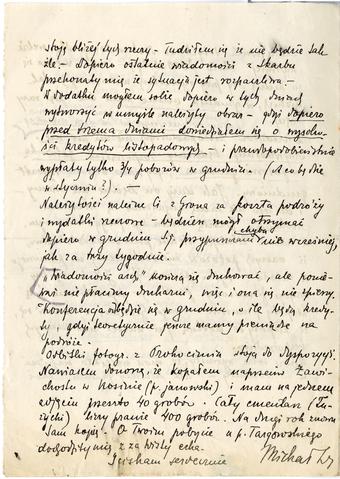 stoją bliżej tych sfery. – Łudziłem się że nie będzie tak
źle. – Dopiero ostatnie wiadomości z Skarbu
przekonały mię że sytuacja jest rozpaczliwa. –
W dodatku mogłem sobie dopiero w tych dniach
wytworzyć w umyśle należyty obraz – gdyż dopiero
przed trzema dniami dowiedziałem się o wysoko-
ści kredytów listopadowych – i prawdopodobieństwie
wypłaty tylko 3/4 poborów w grudniu. (A co będzie
w styczniu?). –
Należytości należne Ci z grona za koszta podróży
i wydatki – będziesz mógł otrzymać
dopiero w grudniu tj. przypuszczam chyba nie wcześniej,
jak za trzy tygodnie.
"Wiadomości arch." kończą się drukować, ale ponie-
waż nie płacimy drukarni, więc i ona się nie spieszy.
Konferencja odbędzie się w grudniu, o ile będą kredy-
ty, gdyż teoretycznie jeszcze mamy pieniądze na
podróże.
Odbitki fotogr. z Prokocimia stoją do dyspozycji.
Nawiasem donoszę, że kopałem naprzeciw Zawi-
chostu w Kosinie (p. janowski) i mam na jednem
zdjęciu przeszło 40 grobów. Cały cmentarz (Łu-
życki) liczy pewnie 400 grobów. Na drugi rok znowu
tam kopię. – O Twoim pobycie u p. Targowskiego
doszły mię z za Wisły echa.
Ściskam serdecznie
Michał